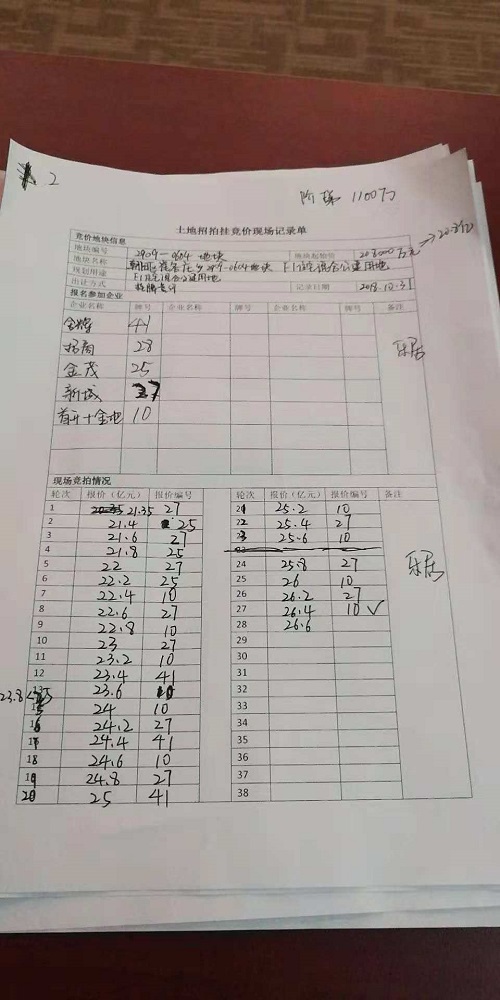 2
阶梯 1100万
土地招拍挂竞价现场记录单
竞价地块信息
地块编号 2909-0604 地块 地块起始价 203000万元 → 20.3亿
地块名称 2909-0604地块 F1住宅混合公建用地
规划用途 F1住宅混合公建用地
出让方式 挂牌竞价 记录日期 2018.12.31
报名参加企业
企业名称 牌号 企业名称 牌号 企业名称 牌号 备注
金辉 41
招商 28 乐居
金茂 25
新城 27
首开+金地 10
现场竞拍情况
轮次 报价（亿元） 报价编号 轮次 报价（亿元） 报价编号 备注
1 21.35 27 21 25.2 10
2 21.4 25 22 25.4 27
3 21.6 27 23 25.6 10
4 21.8 25
5 22 27 24 25.8 27 乐居
6 22.2 25 25 26 10
7 22.4 10 26 26.2 27
8 22.6 27 27 26.4 10 ✓
9 22.8 10 28 26.6
10 23 27 29
11 23.2 10 30
12 23.4 41 31
23.6 10 32
23.8 24 10 33
16 24.2 27 34
17 24.4 41 35
18 24.6 10 36
19 24.8 27 37
20 25 41 38